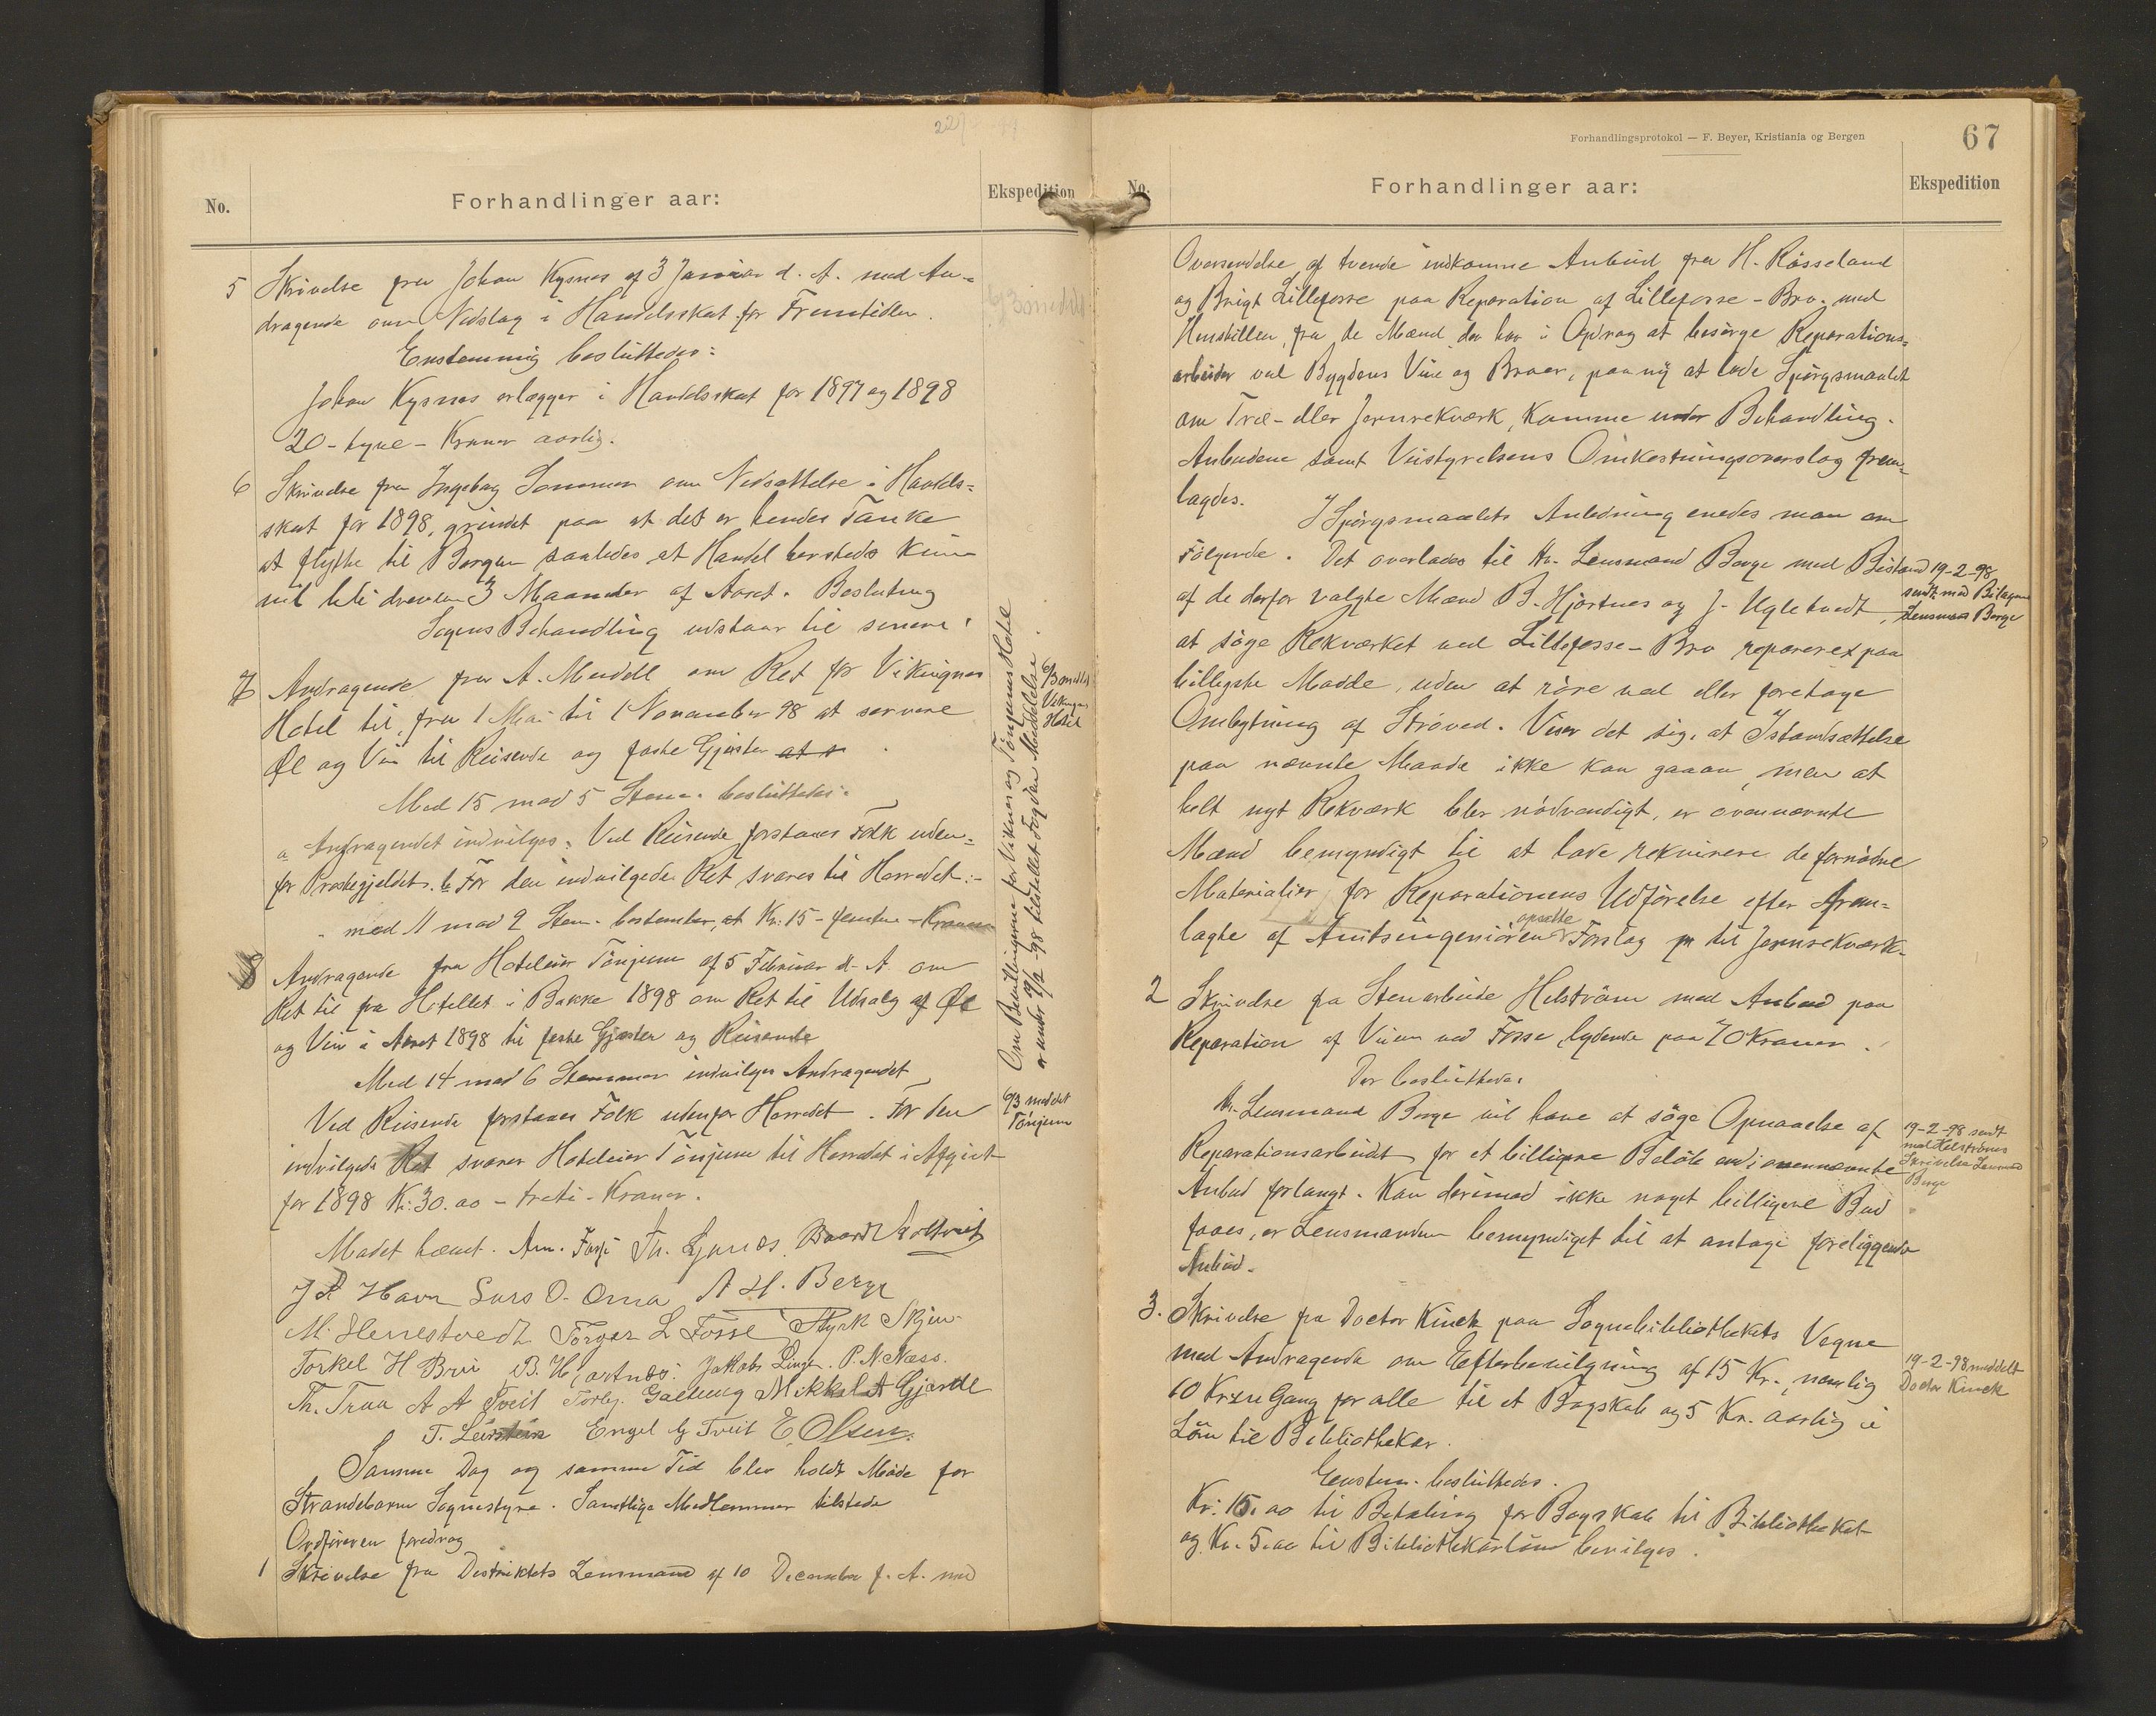 No.
Forhandlinger aar:
Ekspedition
5 Skrivelse fra Johan Kysnes af 3 Januar d. A. med An-
dragende om Nedslag i Handelsskat for Fremtiden.
Enstemmig besluttedes:
Johan Kysnes erlægger i Handelsskat for 1897 og 1898
20 - tyve - Kroner aarlig.
6 Skrivelse fra Ingebog om Nedsættelse i Handels-
skat for 1898, grundet paa at det er hendes Tanke
at flytte til Bergen saaledes at Handel hersteds kun
vil bli dreven 3 Maaneder af Aaret. Beslutning
Sagens Behandling udstaar til senere.
7 Andragende fra A. Mundell om Ret for Vikingnes
Hotel til, fra 1 Mai til 1 November 98 at servere
Øl og Vin til Reisende og faste Gjæster at s
Med 15 mod 5 Stem. besluttedes:
a Andragendet indvilges. Ved Reisende forstaaes Folk uden-
for Præstegjeldet. b For den indvilgede Ret svares til Herredet:-
med 11 mod 9 Stem. bestemtes, at Kr. 15 - femten - Kroner
8 Andragende fra Hoteleier Tönjum af 5 Februar d. A. om
Ret til fra Hotellet i Bakke 1898 om Ret til Udsalg af Øl
og Vin i Aaret 1898 til faste Gjæster og Reisende
Med 14 mod 6 Stemmer indvilges Andragendet
Ved Reisende forstaaes Folk udenfor Herredet. For den
indvilgede Ret svarer Hoteleier Tönjum til Herredet i Afgift
for 1898 Kr. 30.00 - treti - Kroner.
6/3 meddelt
Vikingnes
Hotel
Om Bevillingerne for Viknes og Tönjums Hotel
er under 9/2 -98 tilstillet Fogden Meddelelse.
6/3 meddelt
Tönjum
Mødet hævet. Am. Fosse Th. Gjønæs. Baard Soltveit
J A Havn Lars O. Oma A H. Berge
M. Herrestvedt Torger L Fosse Styrk Skjen
Torkel H Bru B. Hjartnes. Jakob Linge. P. N. Næss.
Th. Traa A A Tveit Torbj. Gallung Mikkel A Gjerde
T. Leirstein Engel Tveit E. Olsen.
Samme Dag og samme Tid blev holdt Møde for
Strandebarm Sognestyre. Samtlige Medlemmer tilstede
Ordføreren foredrog
1 Skrivelse fra Distriktets Lensmand af 10 December f. A. med
Forhandlingsprotokol — F. Beyer, Kristiania og Bergen
67
No.
Forhandlinger aar:
Ekspedition
Oversendelse af tvende indkomne Anbud fra H. Røsseland
og Brigt Lillefosse paa Reparation af Lillefosse-Bro, med
Henstillen, fra de Mænd der har i Opdrag at besörge Reparations-
arbeider ved Bygdens Veie og Broer, paa ny at lade Spörgsmaalet
om Træ- eller Jernrekværk, komme under Behandling.
Anbudene samt Veistyrelsens Omkostningsoverslag frem-
lagdes.
I Spörgsmaalets Anledning enedes man om
Fölgende. Det overlades til Hr. Lensmand Berge med Bistand
af de derfor valgte Mænd B. Hjartnes og J. Ugletvedt,
at söge Rekværket ved Lillefosse-Bro repareret paa
billigste Maade, uden at röre ved eller foretage
Ombytning af Ströved. Viser det sig, at Istandsættelse
paa nævnte Maade ikke kan gaa an, men at
helt nyt Rekværk blev nödvendigt, er ovennævnte
Mænd bemyndigt til at lade rekvirere de fornödne
Materialier for Reparationens Udförelse efter frem-
lagte af Amtsingeniören opsatte Forslag til Jernrekværk.
19-2-98
sendt med Bilagene
Lensmand Berge
2 Skrivelse fra Stenarbeider Helström med Anbud paa
Reparation af Veien ved Fosse, lydende paa 70 Kroner.
Der besluttedes
Hr. Lensmand Berge vil have at söge Opnaaelse af
Reparationsarbeidet for et billigere Belöb end i ovennævnte
Anbud forlangt. Kan derimod ikke noget billigere Bud
faaes, er Lensmanden bemyndiget til at antage foreliggende
Anbud.
19-2-98 sendt
med Helströms
Skrivelse Lensmand
Berge
3. Skrivelse fra Doctor Kinck paa Sognebibliothekets Vegne
med Andragende om Efterbevilgning af 15 Kr., nemlig
10 Kr. en Gang for alle til et Bogskab og 5 Kr. aarlig i
Lön til Bibliothekar.
Enstem. besluttedes.
Kr. 15.00 til Betaling for Bogskab til Bibliotheket
og Kr. 5.00 til Bibliothekarlön bevilges.
19-2-98 meddelt
Doctor Kinck